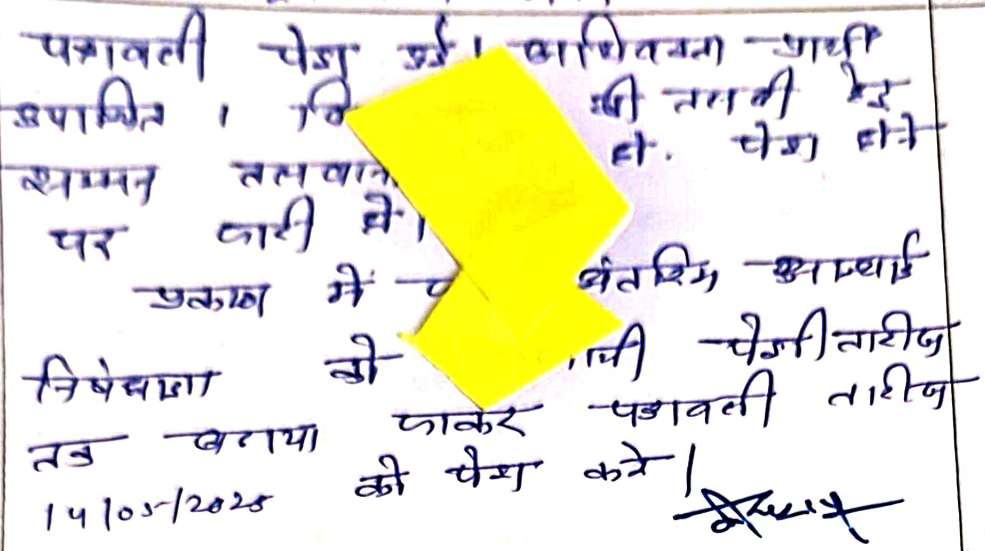 पत्रावली पेश हुई। अभिभाषक प्रार्थी
उपस्थित । वि की तलबी हेतु
सम्मन तलवाना हो. पेश होने
पर जारी हो।
प्रकरण में अंतरिम अस्थाई
निषेधाज्ञा को पेशी तारीख
तक बढाया जाकर पत्रावली तारीख
14/05/2025 को पेश करे।